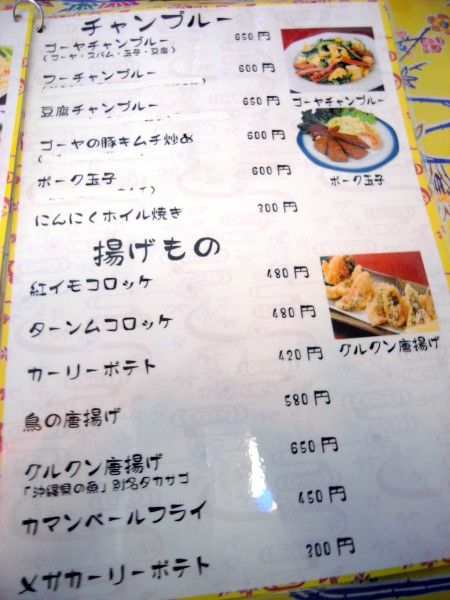 チャンプルー
ゴーヤチャンプルー 650円
(ゴーヤ・スパム・玉子・豆腐)
フーチャンプルー 600円
豆腐チャンプルー 650円
ゴーヤチャンプルー
ゴーヤの豚キムチ炒め 600円
ポーク玉子 600円
ポーク玉子
にんにくホイル焼き 300円
揚げもの
紅イモコロッケ 480円
ターンムコロッケ 480円
グルクン唐揚げ
カーリーポテト 420円
鳥の唐揚げ 580円
グルクン唐揚げ 650円
「沖縄県の魚」別名タカサゴ
カマンベールフライ 450円
メガカーリーポテト 300円